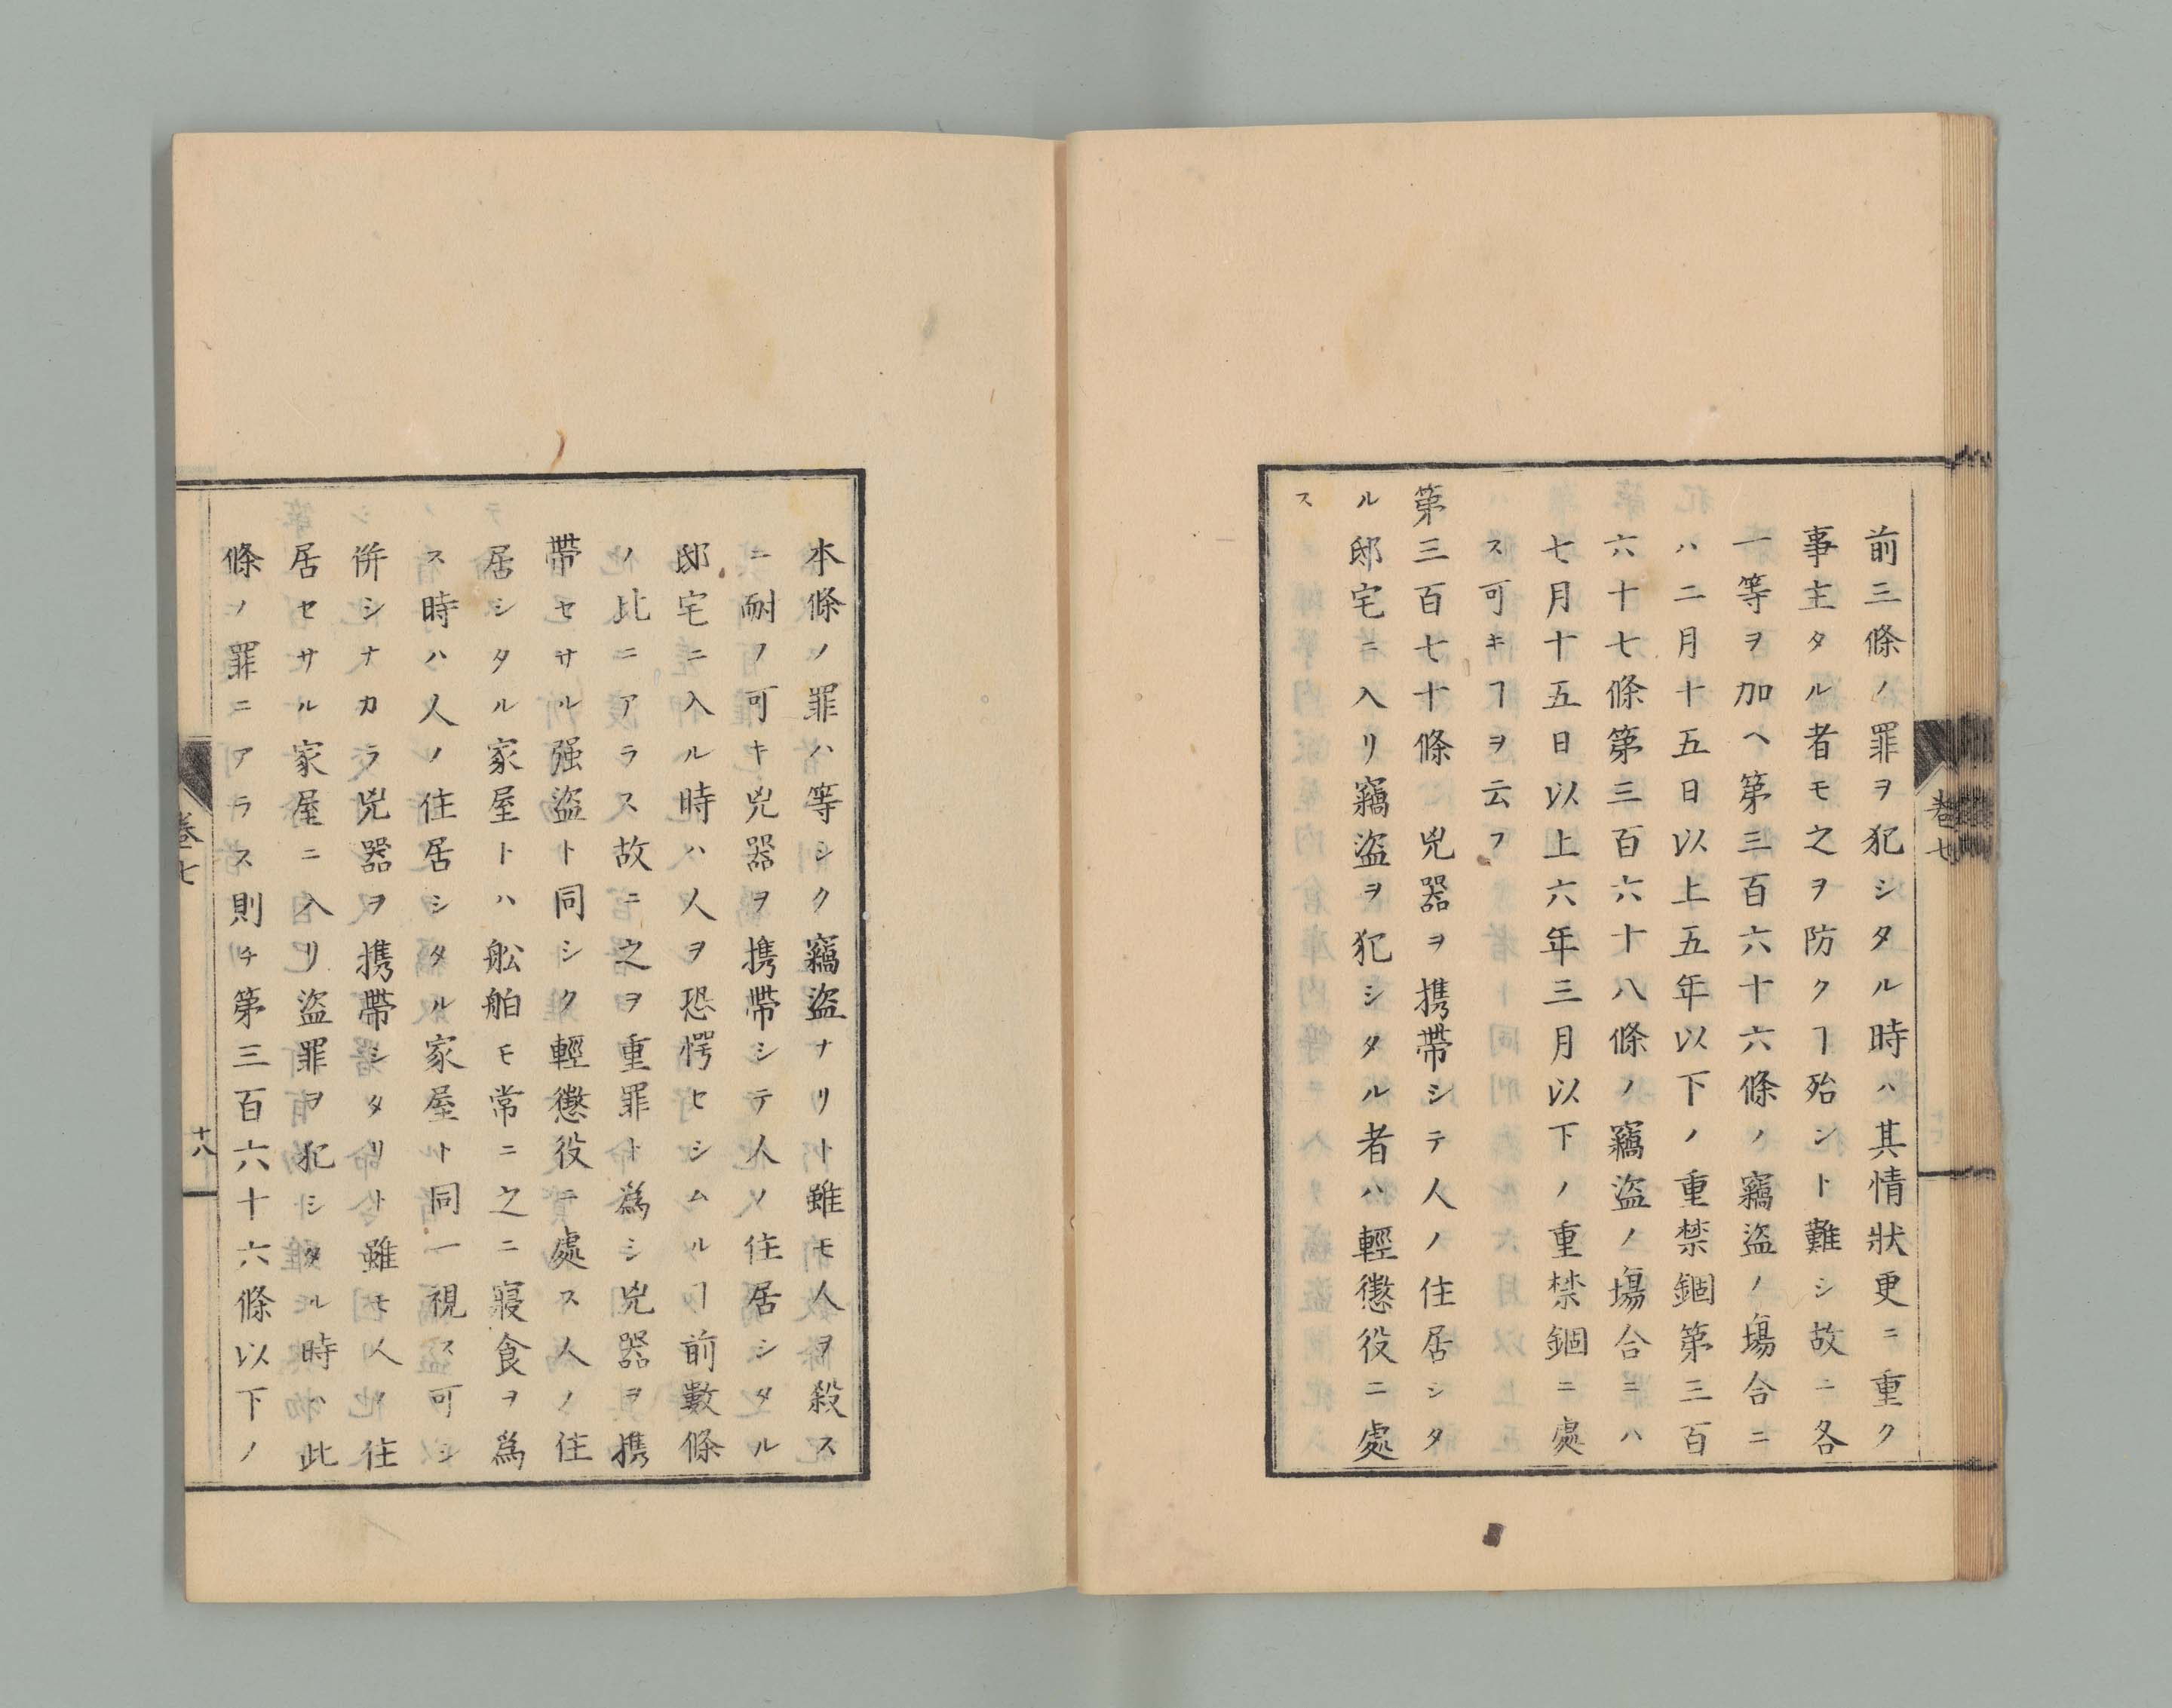 前三條ノ罪ヲ犯シタル時ハ其情狀更ニ重ク
事主タル者モ之ヲ防クヿ殆ント難シ故ニ各
一等ヲ加ヘ第三百六十六條ノ竊盜ノ塲合ニ
ハ二月十五日以上五年以下ノ重禁錮第三百
六十七條第三百六十八條ノ竊盜ノ塲合ニハ
七月十五日以上六年三月以下ノ重禁錮ニ處
ス可キヿヲ云フ
第三百七十條 兇器ヲ携帶シテ人ノ住居シタ
ル邸宅ニ入リ竊盜ヲ犯シタル者ハ輕懲役ニ處
ス
本條ノ罪ハ等シク竊盜ナリト雖モ人ヲ殺ス
ニ耐ノ可キ兇器ヲ携帶シテ人ノ住居シタル
邸宅ニ入ル時ハ人ヲ恐愕セシムルヿ前數條
ノ比ニアラス故ニ之ヲ重罪ト爲シ兇器ヲ携
帶セサル强盜ト同シク輕懲役ニ處ス人ノ住
居シタル家屋トハ舩舶モ常ニ之ニ寢食ヲ爲
ス時ハ人ノ住居シタル家屋ト同一視ス可シ
併シナカラ兇器ヲ携帶シタリト雖モ人ノ住
居セサル家屋ニ入リ盜罪ヲ犯シタル時ハ此
條ノ罪ニアラス則チ第三百六十六條以下ノ
卷七
十八